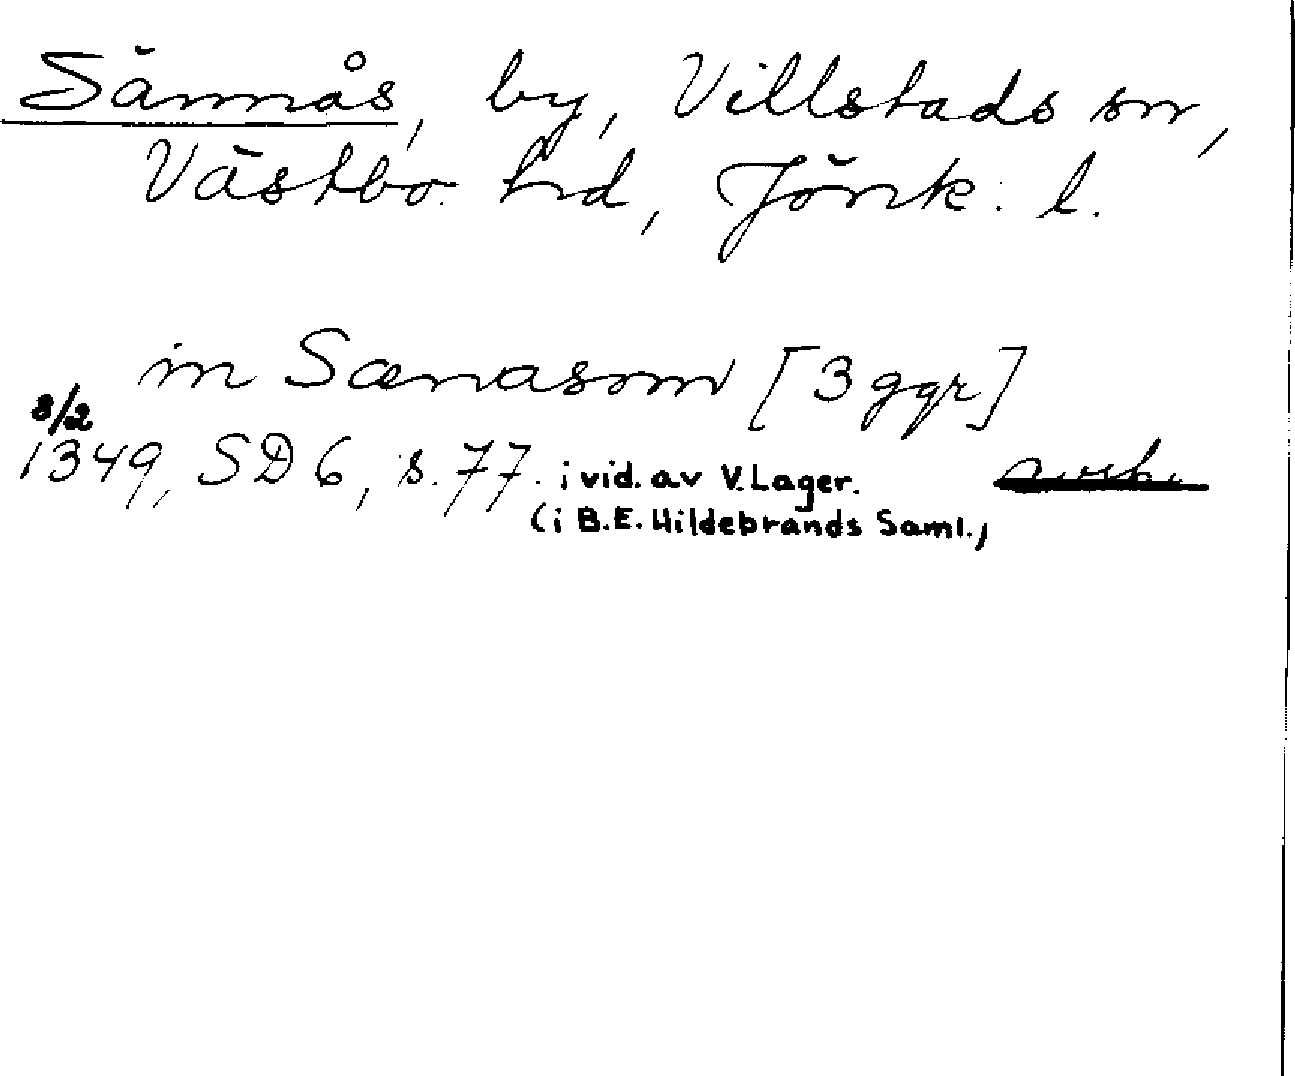 Sännås, by, Villstads sn,
Västbo hd, Jönk. l.
in Sænasom [3 ggr]
8/2
1349, SD 6, s. 77. i vid. av V. Lager.
(i B.E. Hildebrands Saml.,